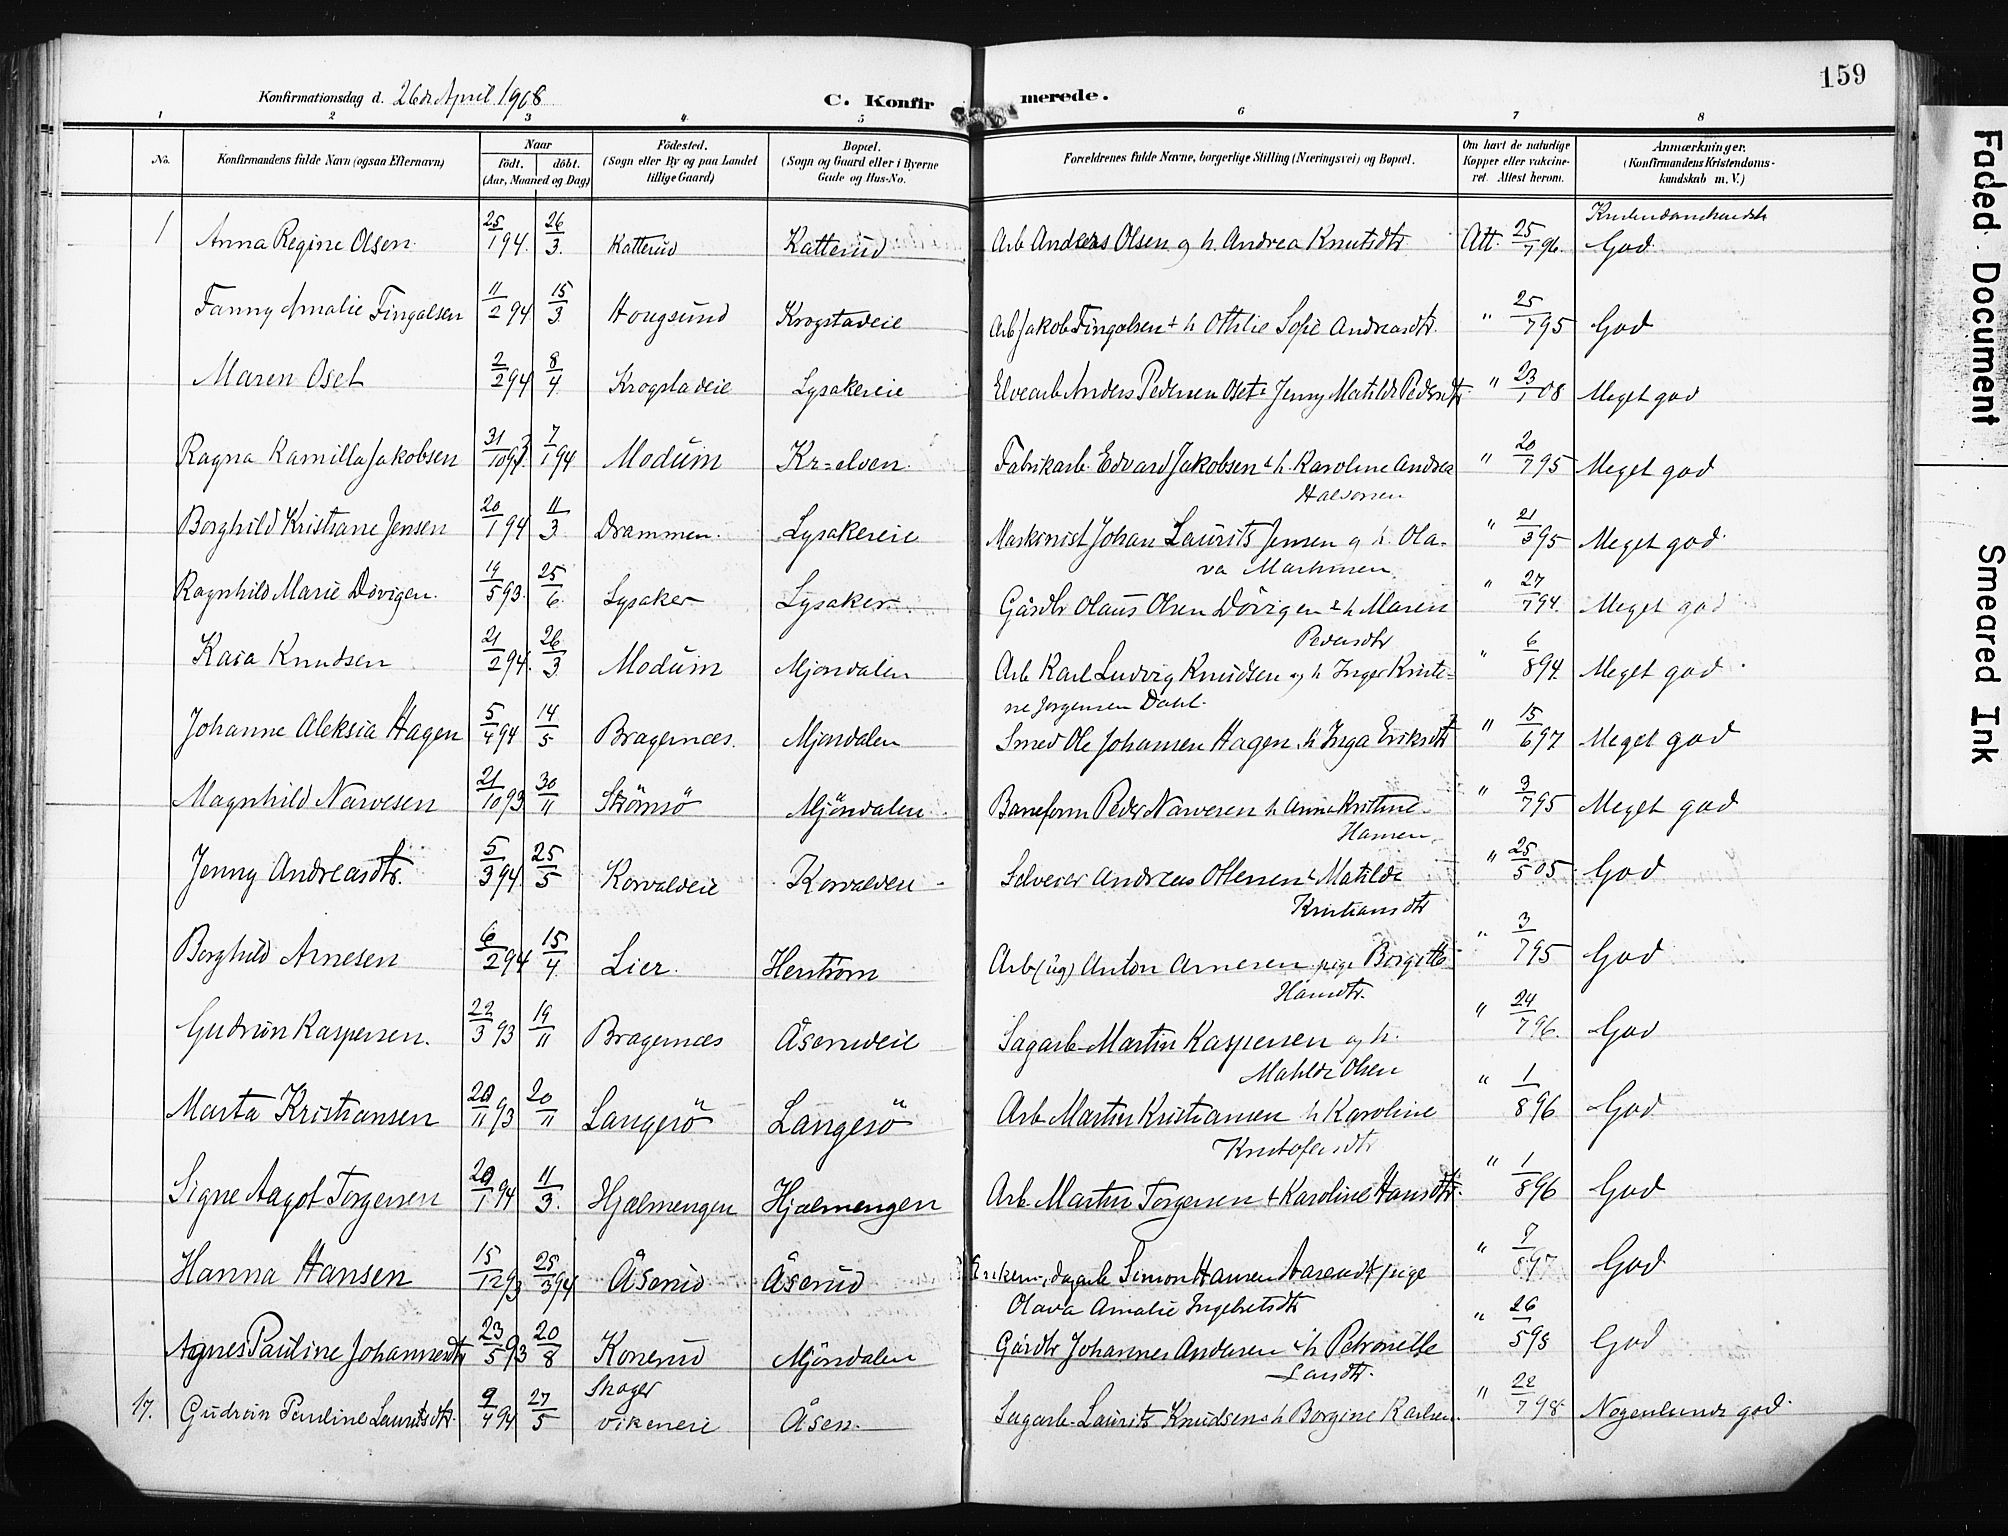 159
Konfirmationsdag d. 26de April 1908
C. Konfirmerede.
1 2 3 4 5 6 7 8
No. Konfirmandens fulde Navn (ogsaa Efternavn) Naar født. døbt. (Aar, Maaned og Dag) Fødested. (Sogn eller By og paa Landet tillige Gaard) Bopæl. (Sogn og Gaard eller i Byerne Gade og Hus-No. Forældrenes fulde Navne, borgerlige Stilling (Næringsvei) og Bopæl. Om havt de naturlige Kopper eller vakcineret. Attest herom. Anmærkninger. (Konfirmandens Kristendomskundskab m. V.)
1 Anna Regine Olsen 25/1 94. 26/3. Katterud Katterud Arb Anders Olsen og h. Andrea Knutsdtr Att. 25/7 96. God.
Fanny Amalie Fingalsen 11/2 94 15/3 Hougsund Krogstadeie Arb Jakob Fingalsen + h Othilie Sofie Andreasdtr. " 25/7 95 God
Maren Oset 2/2 94 8/4 Krogstadeie Lysakereie Elvearb Anders Pedersen Oset + Jenny Matilde Pedersdtr " 23/1 08 Meget god
Ragna Kamilla Jakobsen 31/10 93. 7/1 94 Modum Kr-elven. Fabrikarb. Edvard Jakobsen + h. Karoline Andrea " 20/7 95 Meget god
Borghild Kristiane Jensen 20/1 94 11/3 Drammen. Lysakereie Maskinist Johan Laurits Jensen og h. Ola- " 21/3 95 Meget god
va Martinsen.
Ragnhild Marie Dövigen. 19/5 93. 25/6. Lysaker Lysaker. Gårdbr Olaus Olsen Dövigen + h Maren " 27/7 94. Meget god
Pedersdtr
Kara Knudsen 21/2 94. 26/3. Modum Mjondalen Arb Karl Ludvig Knudsen og h Inger Kristi- " 6/8 94 Meget god
ne Jorgensen Dahl.
Johanne Aleksia Hagen 5/4 94 14/5 Bragernæs. Mjondalen Smed Ole Johansen Hagen, h Inga Eriksdtr " 15/6 97 Meget god
Magnhild Narvesen 21/10 93 30/11 Strömsö Mjöndalen. Baneform Peder Narvesen h Anna Kristine " 3/7 95 Meget god
Hansen.
Jenny Andreasdtr. 5/3 94 25/5 Korvaldeie Korvalden Selveier Andreas Ottersen + Matilde " 25/5 05 God
Kristiansdtr
Borghild Arnesen 6/2 94 15/4 Lier. Herstrom Arb (ug) Anton Arnesen pige Borgitte " 3/7 95 God
Hansdtr.
Gudrun Kaspersen. 22/3 93 19/11 Bragernæs Åserudeie Sagarb. Martin Kaspersen og h. " 24/7 96. God
Matilde Olsen
Marta Kristiansen 20/11 93 20/11 Langesö Langesö Arb Martin Kristiansen h Karoline " 1/8 96 God
Kristofersdtr
Signe Aagot Torgersen 20/1 94 11/3. Hjælmengen Hjælmengen Arb. Martin Torgersen + Karoline Hansdtr. " 1/8 96 God
Hanna Hansen 15/12 93 25/3 94 Åserud Åserud dagarb Simon Hansen Aaserud + pige " /8 97 God
Olava Amalie Ingebretsdtr
Agnes Pauline Johannesdtr 23/5 93 20/8 Konerud Mjöndalen Gårdbr Johannes Andersen + h Petronelle " 26/5 98 God
Larsdtr.
17. Gudrun Pauline Lauritsdtr. 9/4 94 27/5 Skoger Vikeneie Åsen. Sagarb. Laurits Knudsen + h Borgine Karlsen. " 22/7 98. Nogenlunde god.
Faded Document
Smeared Ink